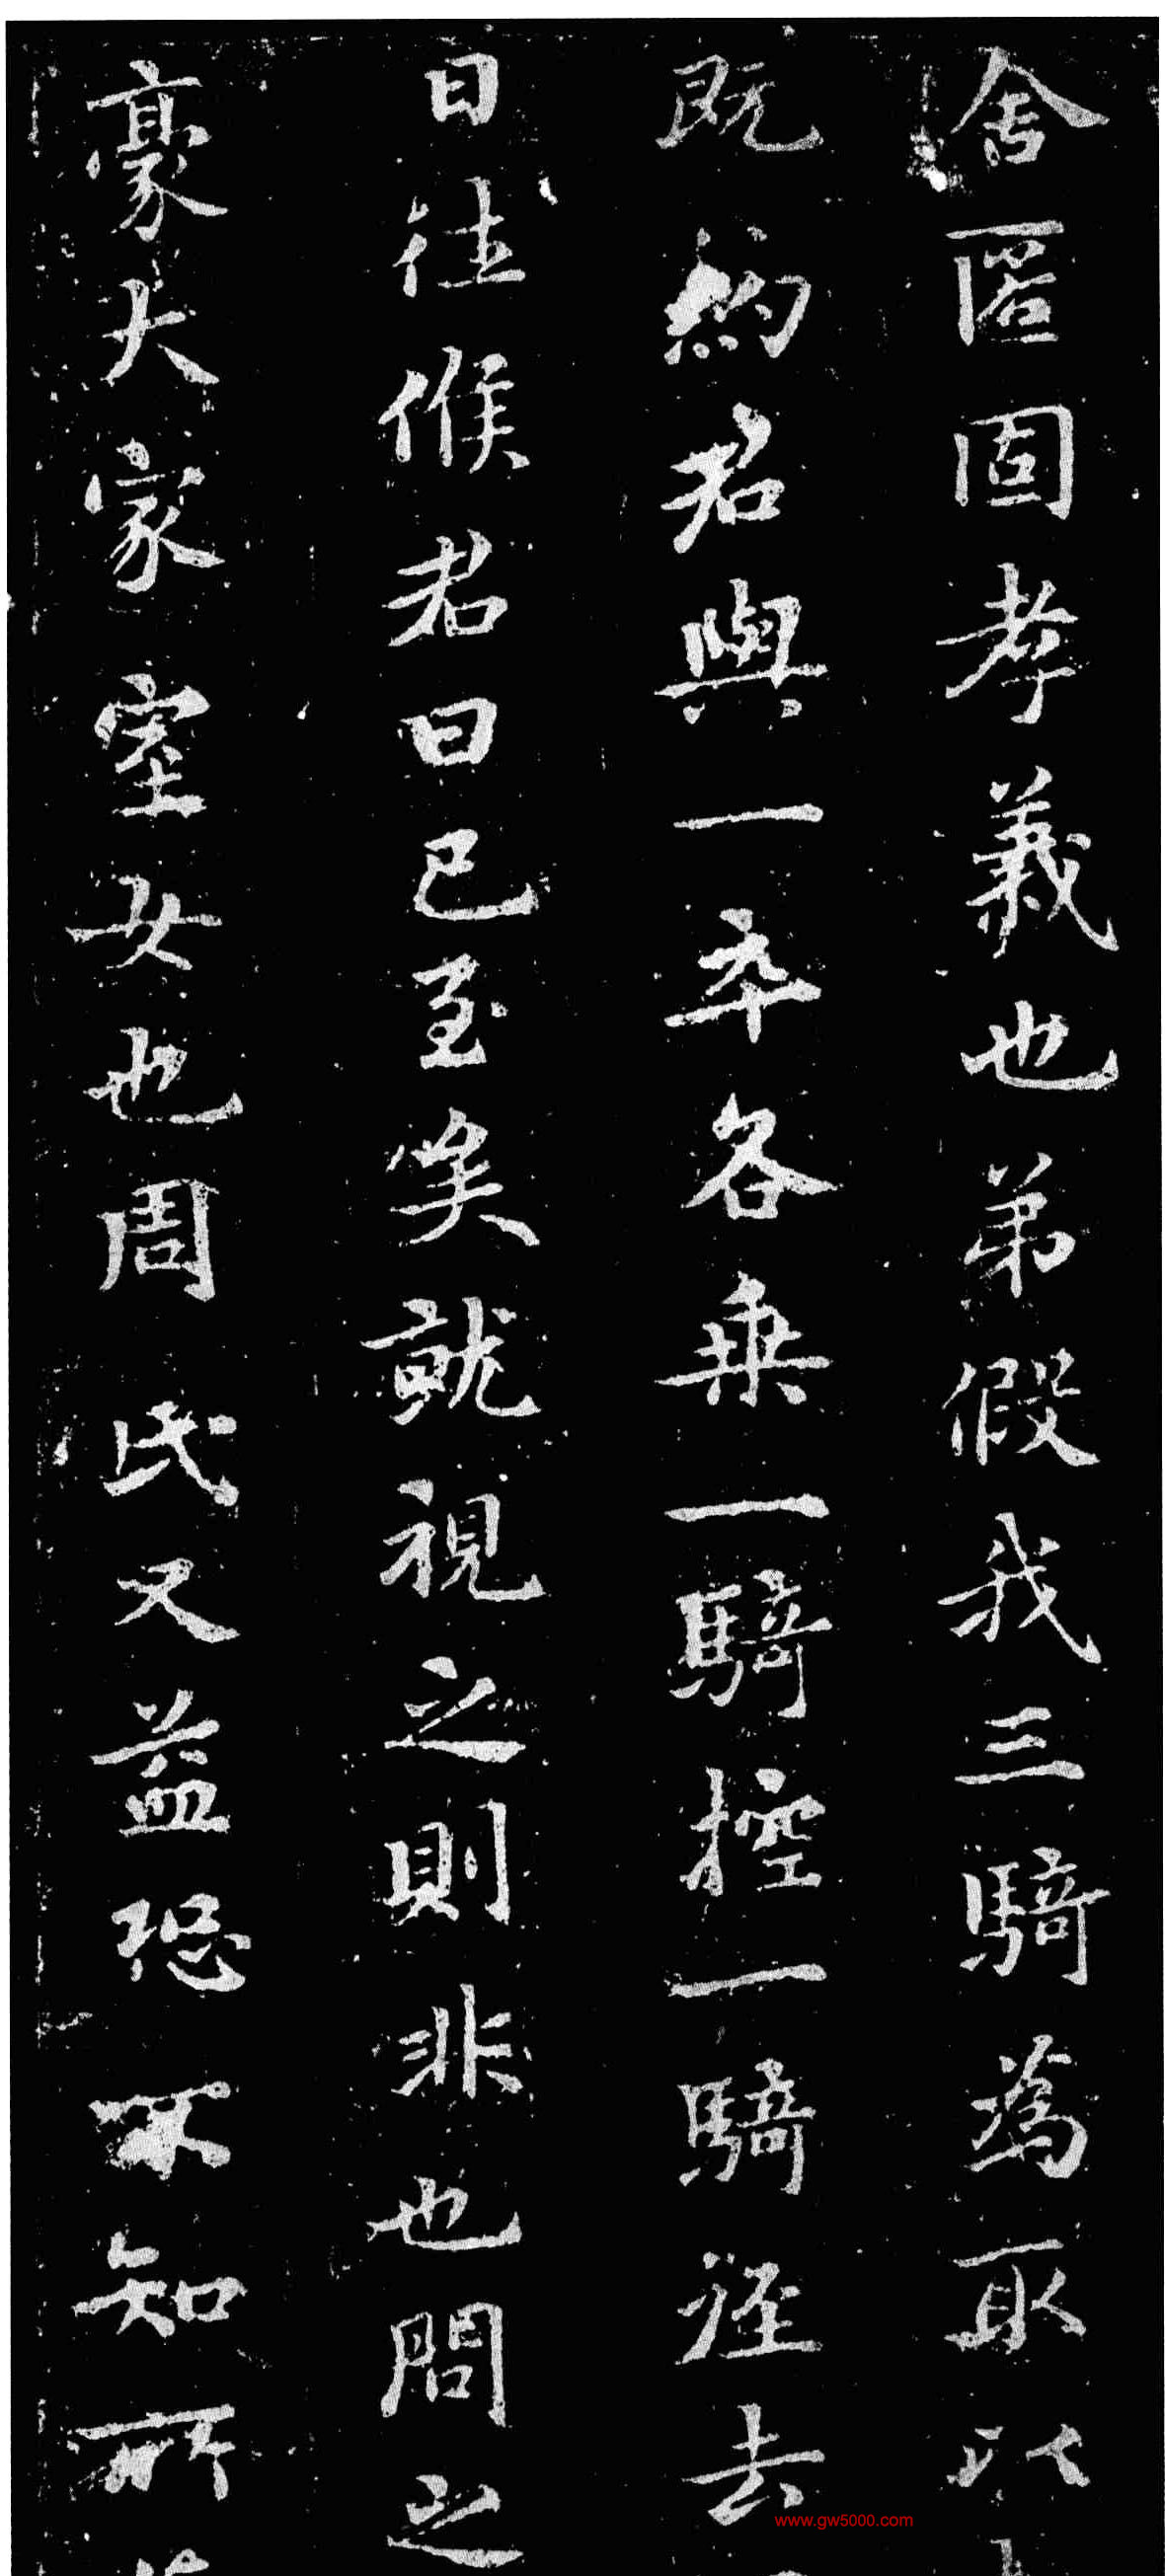 舍匿固孝義也弟假我三騎為取以
既約君與一卒各乗一騎控一騎徑去
日往候君日已至矣就視之則非也問之
豪大家室女也周氏又益恐不知所
www.gw5000.com